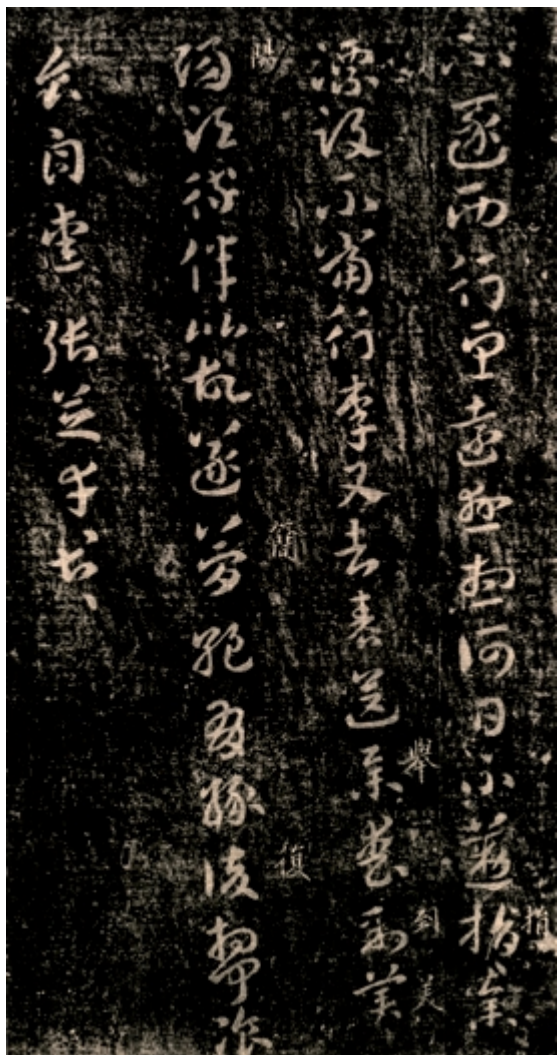 不遂西行望遠懸想何日不懃捐棄
捐
漂沒不當行李又去春送舉喪到美
舉 到 美
陽須待伴比故遂簡絕有緣復相聞飡
陽 簡 復
食自愛張芝幸甚